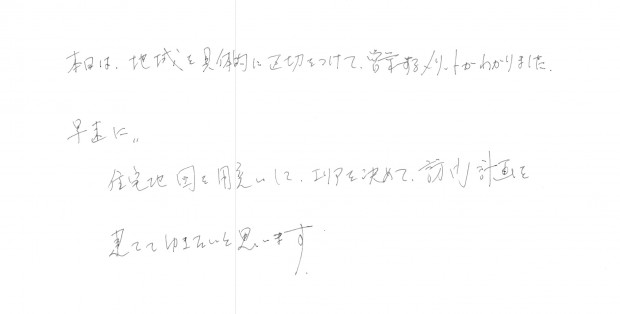 本日は、地域を具体的に区切をつけて、営業するメリットがわかりました。
早速に、
住宅地図を用意いして、エリアを決めて、訪問計画を
建ててゆきたいと思います.